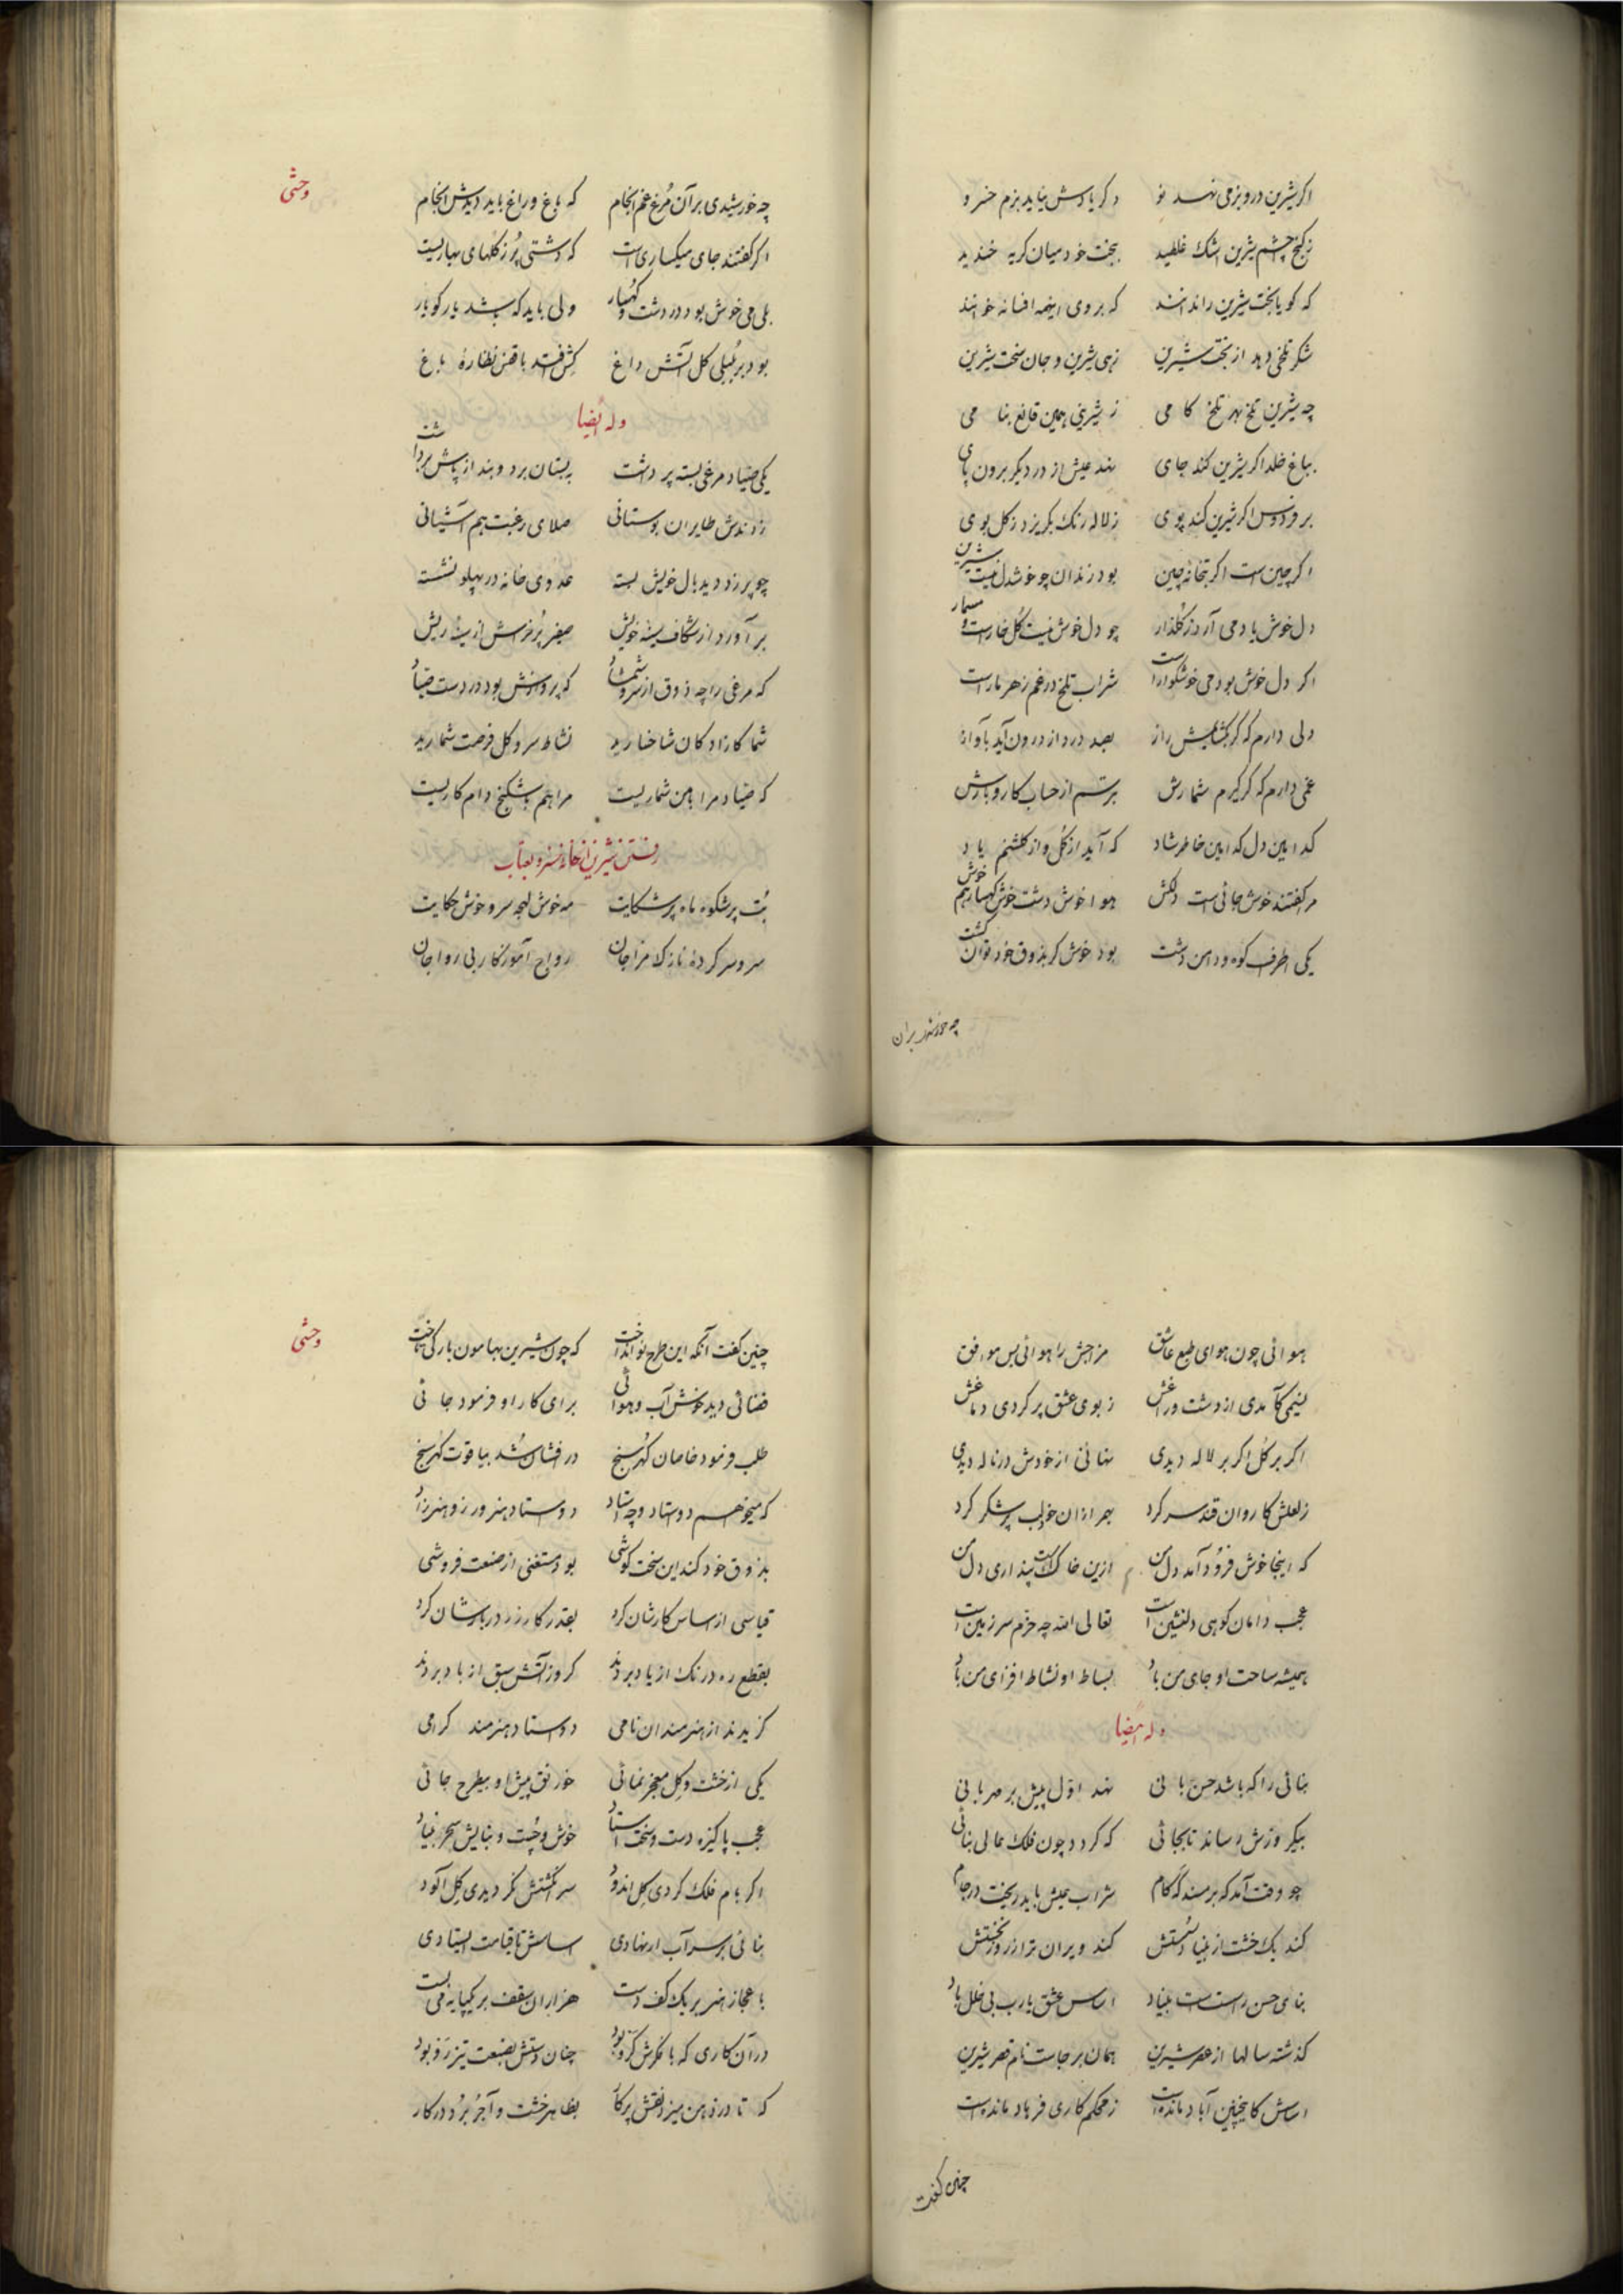 اکر شیرین درو بزمی نهد نو دکر یادش نیاید بزم خسرو
ز کنج چشم شیرین اشک غلطید ببخت خود میان کریه خندید
که کویا بخت شیرین را ندانند که بروی اینهمه افسانه خوانند
شکر تلخی دهد از بخت شیرین زهی شیرین و جان سخت شیرین
چه شیرین تلخ بهر تلخ کامی ز شیرینی همین قانع بنامی
بباغ خلد اکر شیرین کند جای نهد عیش از در دیکر برون پای
بر فردوس اکر شیرین کند پوی ز لاله رنک بکریزد ز کل بوی
اکر چین است اکر بتخانه چین بود زندان چو خوشدل نیست شیرین
دل خوش یاد می آرد ز کلذار چو دل خوش نیست کل خارست و مسمار
اکر دل خوش بود می خوشکوار است شراب تلخ در غم زهر مار است
دلی دارم که کر بکشایمش راز بصد درد از درون آید بآواز
غمی دارم که کر کیرم شمارش بترسم از حساب کار و بارش
کدامین دل کدامین خاطر شاد که آید از کل و از کلشنم یاد
مرا کفتند خوش جائیست دلکش هوا خوش دشت خوش کهسار هم خوش
یکی اطرف کوه و دامن دشت بود خوش کر بذوق خود توان کشت
چه خورشیدی بران
وحشی
چه خورشیدی بر آن مرغ غم انجام که باغ و راغ باید دیدش انجام
اکر کفتند جای میکساریست که دشتی پر ز کلهای بهاریست
بلی می خوش بود در دشت و کهسار ولی باید که باشد یار کو یار
بود بر بلبلی کل آتش داغ کش افتد با قفس نظاره باغ
وله ایضا
یکی صیاد مرغی بسته پر داشت به بستان برد و بند از پاش برداشت
زدندش طایران بوستانی صلای رغبت هم آشیانی
چو پر زد دید بال خویش بسته عدوی خانه در پهلو نشسته
بر آورد از شکاف سینه خویش صفیر پر خراش از سینه ریش
که مرغی را چه ذوق از سرو و شمشاد که پروازش بود در دست صیاد
شما کازادکان شاخسارید نشاط سرو کل فرصت شمارید
که صیاد مرا با من شماریست مرا هم با شکنج دام کاریست
رفتن شیرین از خانه خسرو بعتاب
بت پرشکوه ماه پر شکایت مه خوش لهجه سرو خوش حکایت
سر و سر کرده نازک مزاجان رواج آموز کار بی رواجان
هوائی چون هوای طبع عاشق مزاجش را هوائی بس موافق
نسیمی کآمدی از دشت و راغش ز بوی عشق پر کردی دماغش
اکر بر کل اکر بر لاله دیدی نهانی از خودش در ناله دیدی
ز لعلش کاروان قند سر کرد بهمرازان خود لب پر شکر کرد
که اینجا خوش فرود آمد دل من ازین خاک است پنداری دل من
عجب دامان کوهی دلنشین است تعالی الله چه خرم سر زمین است
همیشه ساحت او جای من باد بساط او نشاط افزای من باد
وله ایضا
بنائی را که باشد حسن بانی نهد اول پیش بر مهربانی
بیکروزش رساند تا بجائی که کردد چون فلک عالی بنائی
چو وقت آمد که بر مسند که کام شراب عیش باید ریخت در جام
کند یک خشت از بنیاد سستش کند ویران تر از روز نخستش
بنای حسن راست است بنیاد اساس عشق یارب بی خلل باد
کذشته سالها از عصر شیرین همان برجاست نام قصر شیرین
اساسش کاینچنین آباد مانده است ز محکم کاری فرهاد مانده است
چنین کفت
وحشی
چنین کفت آنکه این طرح نو انداخت که چون شیرین بهامون بارکی تاخت
فضائی دید خوش آب و هوائی برای کار او فرمود جائی
طلب فرمود خاصان کهرسنج در افشان شد بیاقوت کهرسنج
که میخواهم دو استاد و چه استاد دو استاد هنرورز و هنرزاد
بذوق خود کند این سخت کوشی بود مستغنی از صنعت فروشی
قیاسی از اساس کارشان کرد بقدر کار زر در بارشان کرد
بقطع ره درنک از یاد بردند کرو ز آتش سبق از باد بردند
کزیدند از هنرمندان نامی دو استاد هنرمند کرامی
یکی از خشت و کل معجز نمائی خورنق پیش او بیطرح جائی
عجب پاکیزه دست و سخت استاد خوش و چست و بنایش سحر بنیاد
اکر بام فلک کردی کل اندود سر انکشتش نکردیدی کل آلود
بنائی بر سر آب ار نهادی اساسش تا قیامت ایستادی
باعجاز هنر بر یک کف دست هزاران سقف بر یکپایه می بست
در آن کاری که با فکرش کرو بود چنان دستش بصنعت تیزرو بود
که تا در ذهن میزد نقش پرکار بظاهر خشت و آجر برد در کار